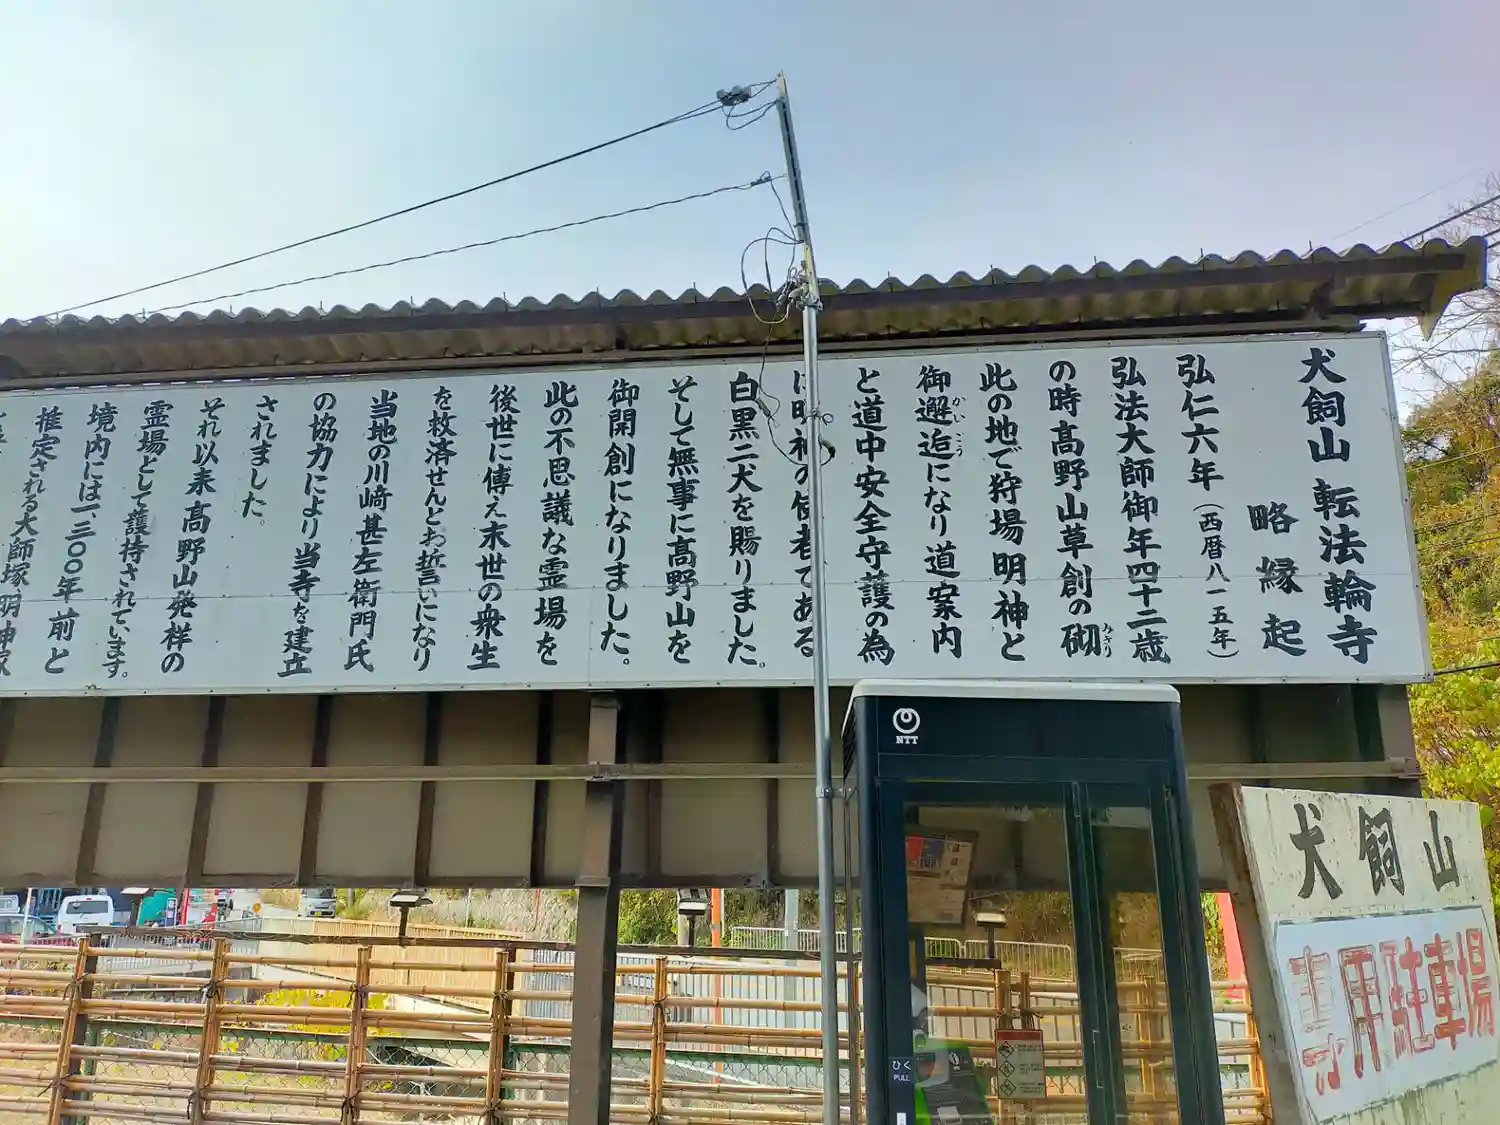 犬飼山 転法輪寺
略縁起
弘仁六年(西暦八一五年)
弘法大師御年四十二歳
の時高野山草創の砌
みぎり
此の地で狩場明神と
御邂逅になり道案内
かいこう
と道中安全守護の為
に明神の使者である
白黒二犬を賜りました。
そして無事に高野山を
御開創になりました。
此の不思議な霊場を
後世に傳え末世の衆生
を救済せんとお誓いになり
当地の川﨑甚左衛門氏
の協力により当寺を建立
されました。
それ以来高野山発祥の
霊場として護持されています。
境内には一、三〇〇年前と
推定される大師塚、明神塚
NTT
ひく
PULL
犬飼山
専用駐車場